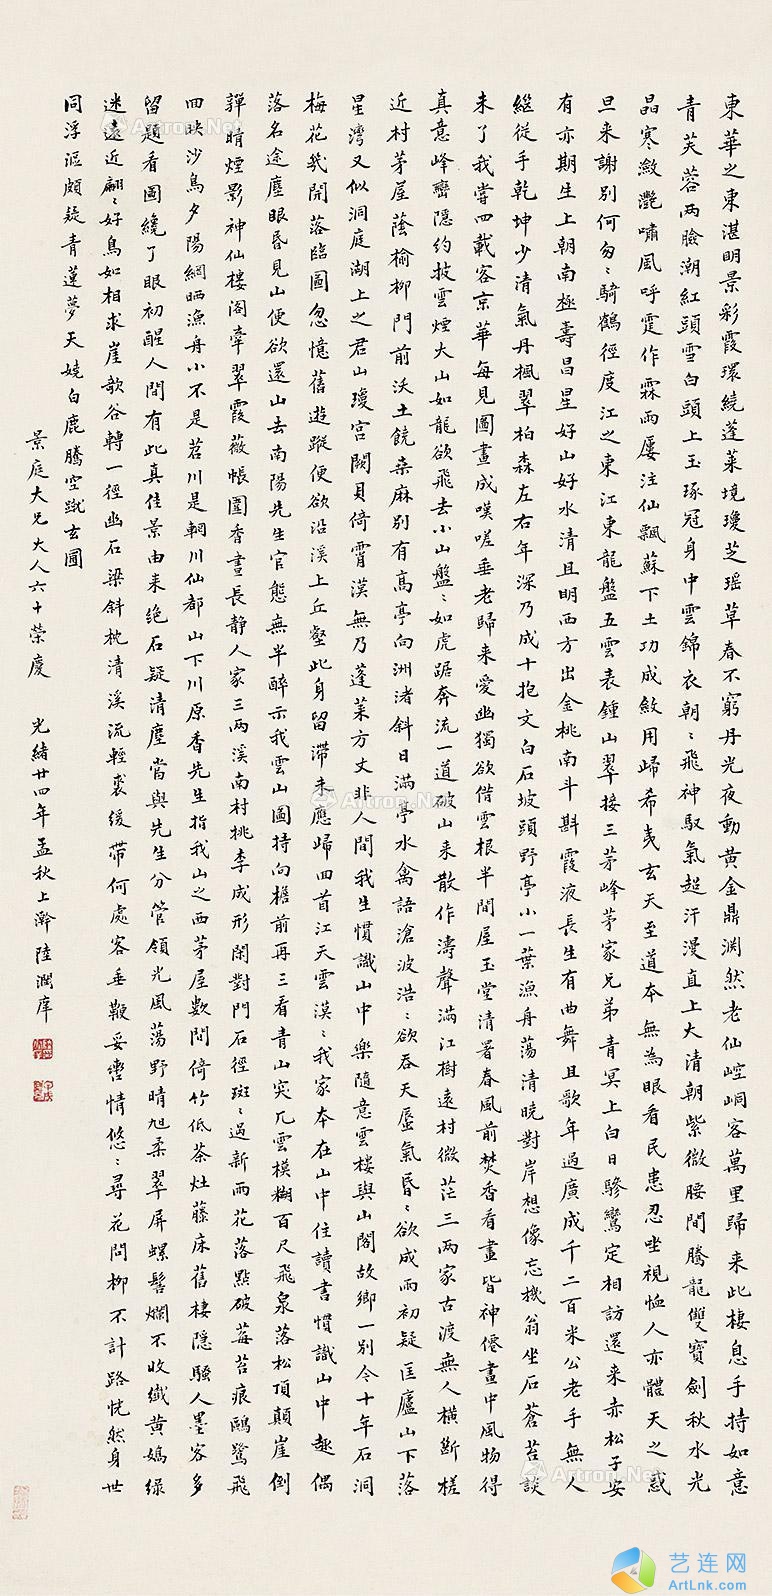 東華之東湛明景彩霞環繞蓬萊境瓊芝瑶草春不窮丹光夜動黃金鼎渊然老仙崆峒客萬里歸来此棲息手持如意
青芙蓉两臉潮紅頭雪白頭上玉琢冠身中雲錦衣朝〻飛神馭氣超汗漫直上大清朝紫微腰間騰龍雙寶劍秋水光
晶寒斂灔嘯風呼霆作霖雨屢注仙瓢蘇下土功成斂用歸希夷玄天至道本無為眼看民患忍坐視恤人亦體天之惑
旦来謝别何匆〻騎鶴徑度江之東江東龍盤五雲表鍾山翠接三茅峰茅家兄弟青冥上白日驂鸞定相訪還来赤松子安
有亦期生上朝南極壽昌星好山好水清且明西方出金桃南斗斟霞液長生有曲舞且歌年過廣成千二百米公老手無人
繼從手乾坤少清氣丹楓翠柏森左右年深乃成十抱文白石坡頭野亭小一葉漁舟蕩清曉對岸想像忘機翁坐石蒼苔談
未了我嘗四載客京華每見圖畫成嘆嗟垂老歸来愛幽獨欲借雲根半間屋玉堂清署春風前焚香看畫皆神僊畫中風物得
真意峰巒隱約披雲煙大山如龍欲飛去小山盤〻如虎踞奔流一道破山来散作濤聲滿江樹遠村微茫三两家古渡無人横斷槎
近村茅屋蔭榆柳門前沃土饒桒麻别有高亭向洲渚斜日滿亭水禽語滄波浩〻欲吞天蜃氣昏〻欲成雨初疑匡廬山下落
星灣又似洞庭湖上之君山瓊宫闕貝倚霄漢無乃蓬莱方丈非人間我生慣識山中樂隨意雲楼與山閣故鄉一别今十年石洞
梅花幾開落臨圖忽憶舊遊蹤便欲沿溪上丘壑此身留滞未應歸四首江天雲漠〻我家本在山中住讀書慣識山中趣偶
落名途塵眼昏見山便欲還山去南陽先生官態無半醉示我雲山圖持向檐前再三看青山突兀雲模糊百尺飛泉落松頂顛崖倒
嚲晴煙影神仙樓阁牽翠霞薇帳圍香晝長静人家三两溪南村桃李成形閑對門石徑斑〻過新雨花落點破莓苔痕鷗鷺飛
回映沙鳥夕陽網晒漁舟小不是苕川是輞川仙都山下川原香先生指我山之西茅屋数間倚竹低茶灶藤床舊棲隱騷人墨客多
留題看圖纔了眼初醒人間有此真佳景由来绝石疑清塵當與先生分管領光風蕩野晴旭柔翠屏螺髻爛不收纖黄嫣绿
迷遠近翩〻好鳥如相求崖歌谷轉一徑幽石梁斜枕清溪流輕裘缓帶何處客垂鞭妥轡情悠〻尋花問柳不計路恍然身世
同浮漚頗疑青蓮夢天姥白鹿騰空蹴玄圃
景庭大兄大人六十荣慶 光緒廿四年孟秋上澣陸潤庠
Artron.Net
Artron.Net
Artron.Net
Artron.Net
艺连网
ArtLnk.com